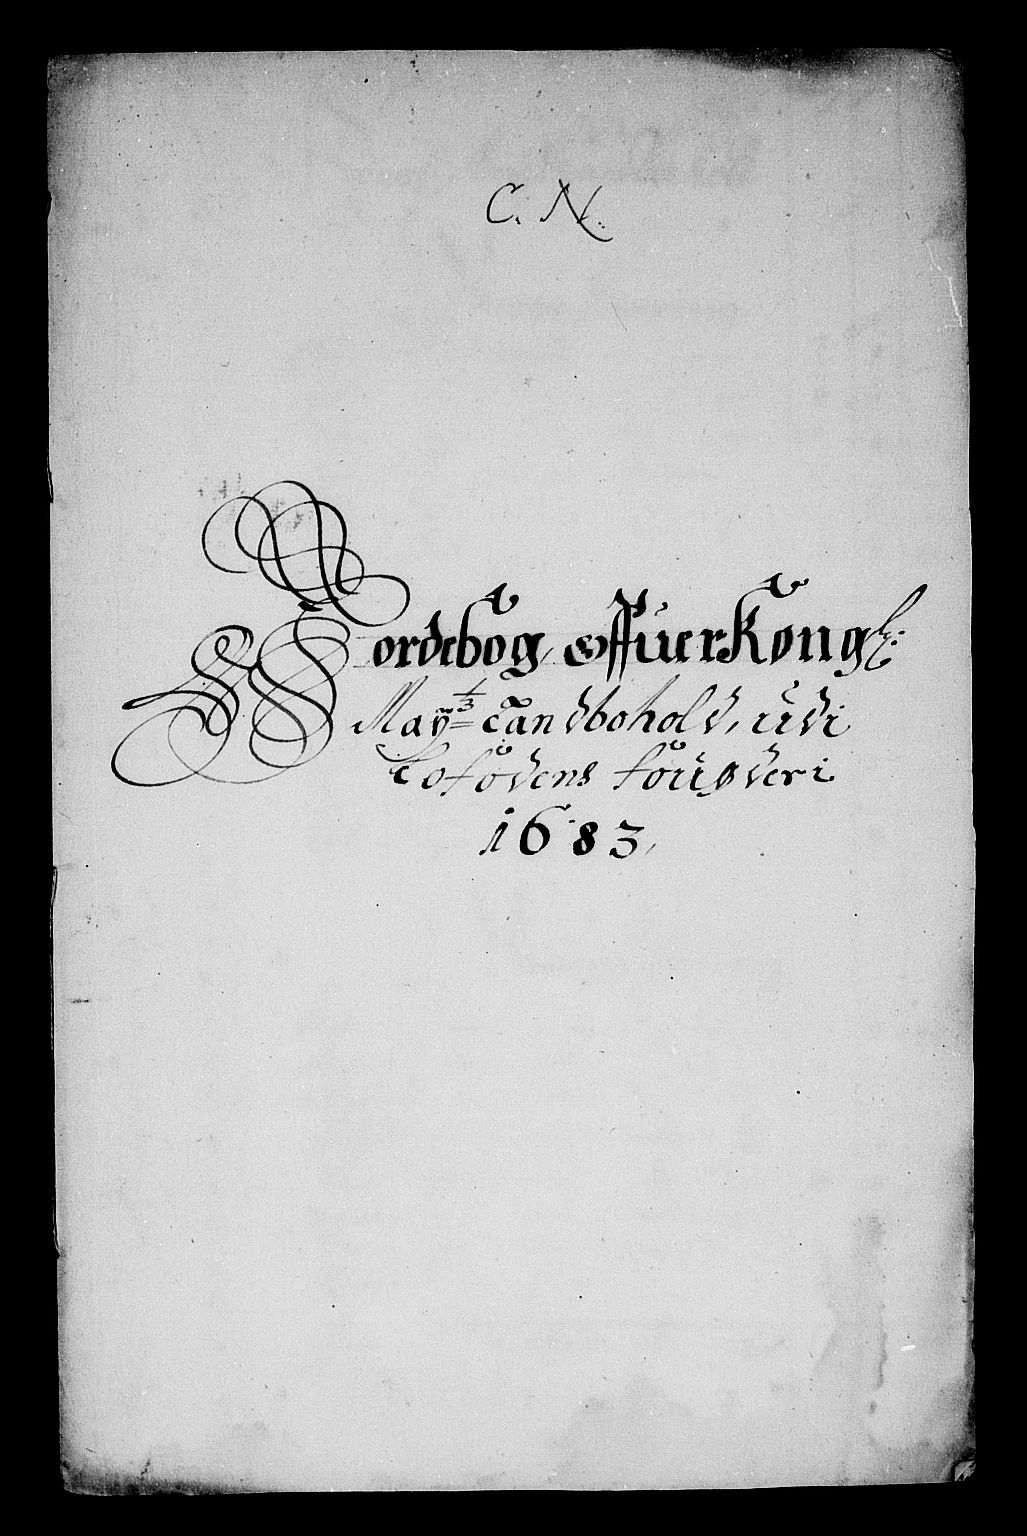 C. N.
Jordebog, offuer Kongl:
Maÿtz Landbohold, udi
Lofodens fougderi
1683,